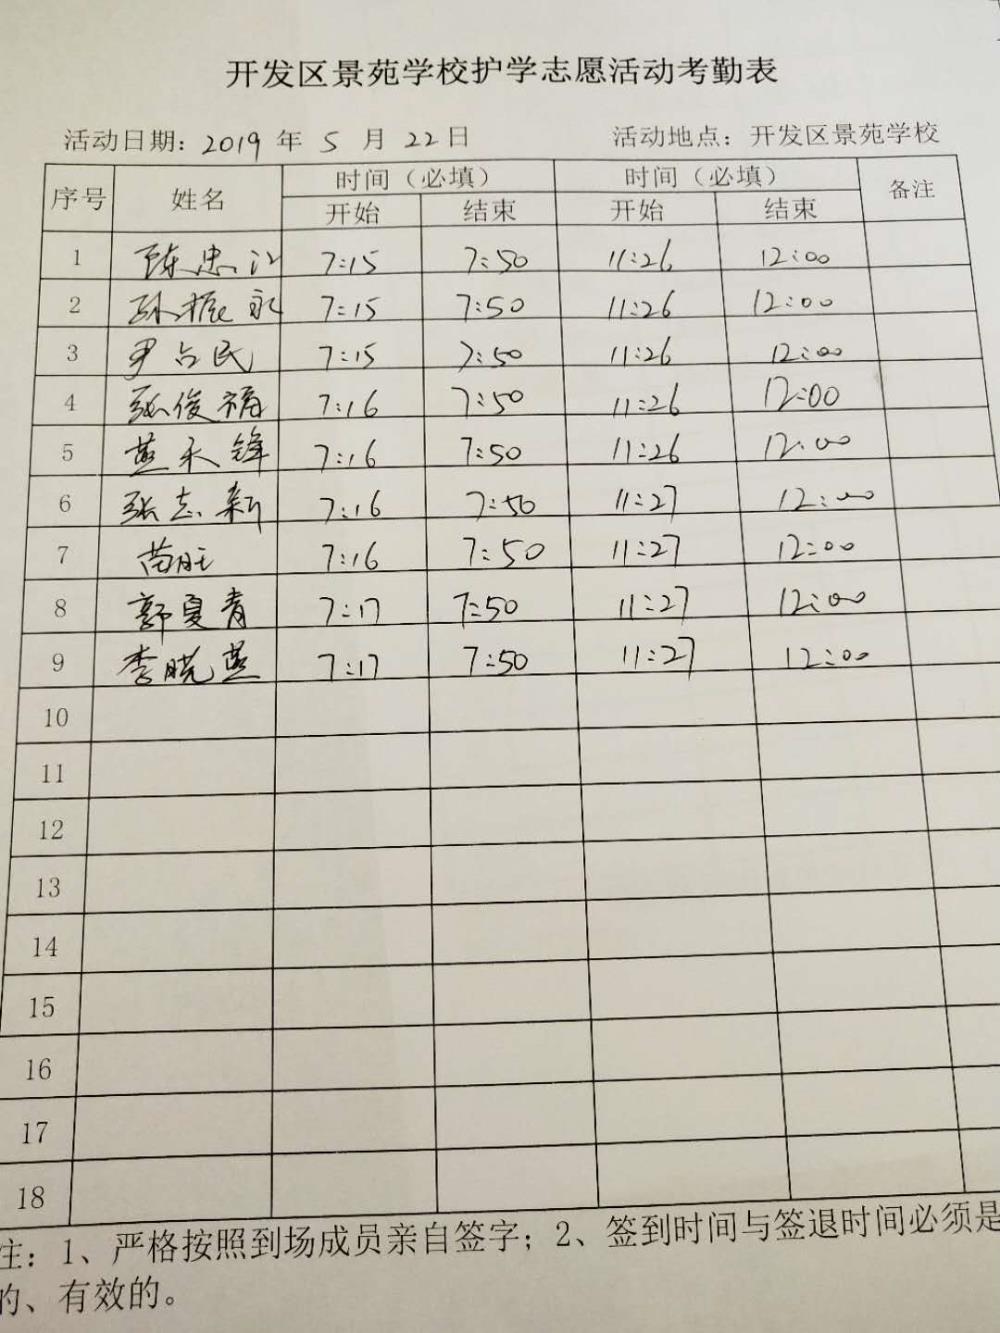 开发区景苑学校护学志愿活动考勤表
活动日期: 2019 年 5 月 22日 活动地点: 开发区景苑学校
序号 姓名 时间（必填） 时间（必填） 备注
开始 结束 开始 结束
1 陈忠江 7:15 7:50 11:26 12:00
2 孙振永 7:15 7:50 11:26 12:00
3 尹占民 7:15 7:50 11:26 12:00
4 张俊福 7:16 7:50 11:26 12:00
5 燕永锋 7:16 7:50 11:26 12:00
6 张志新 7:16 7:50 11:27 12:00
7 苗旺 7:16 7:50 11:27 12:00
8 郭夏青 7:17 7:50 11:27 12:00
9 李晓燕 7:17 7:50 11:27 12:00
10
11
12
13
14
15
16
17
18
注: 1、严格按照到场成员亲自签字; 2、签到时间与签退时间必须是
的、有效的。